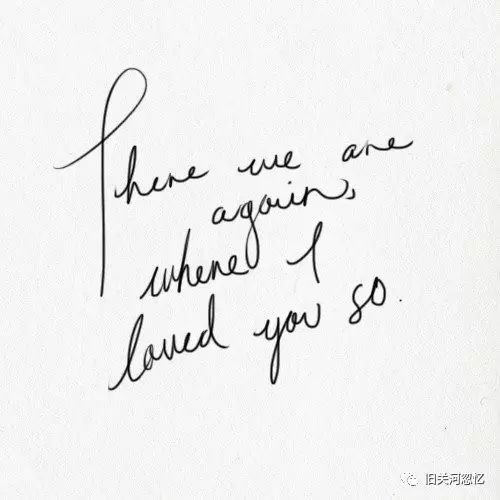 There we are
again,
where I
loved you so.
旧关河忽忆